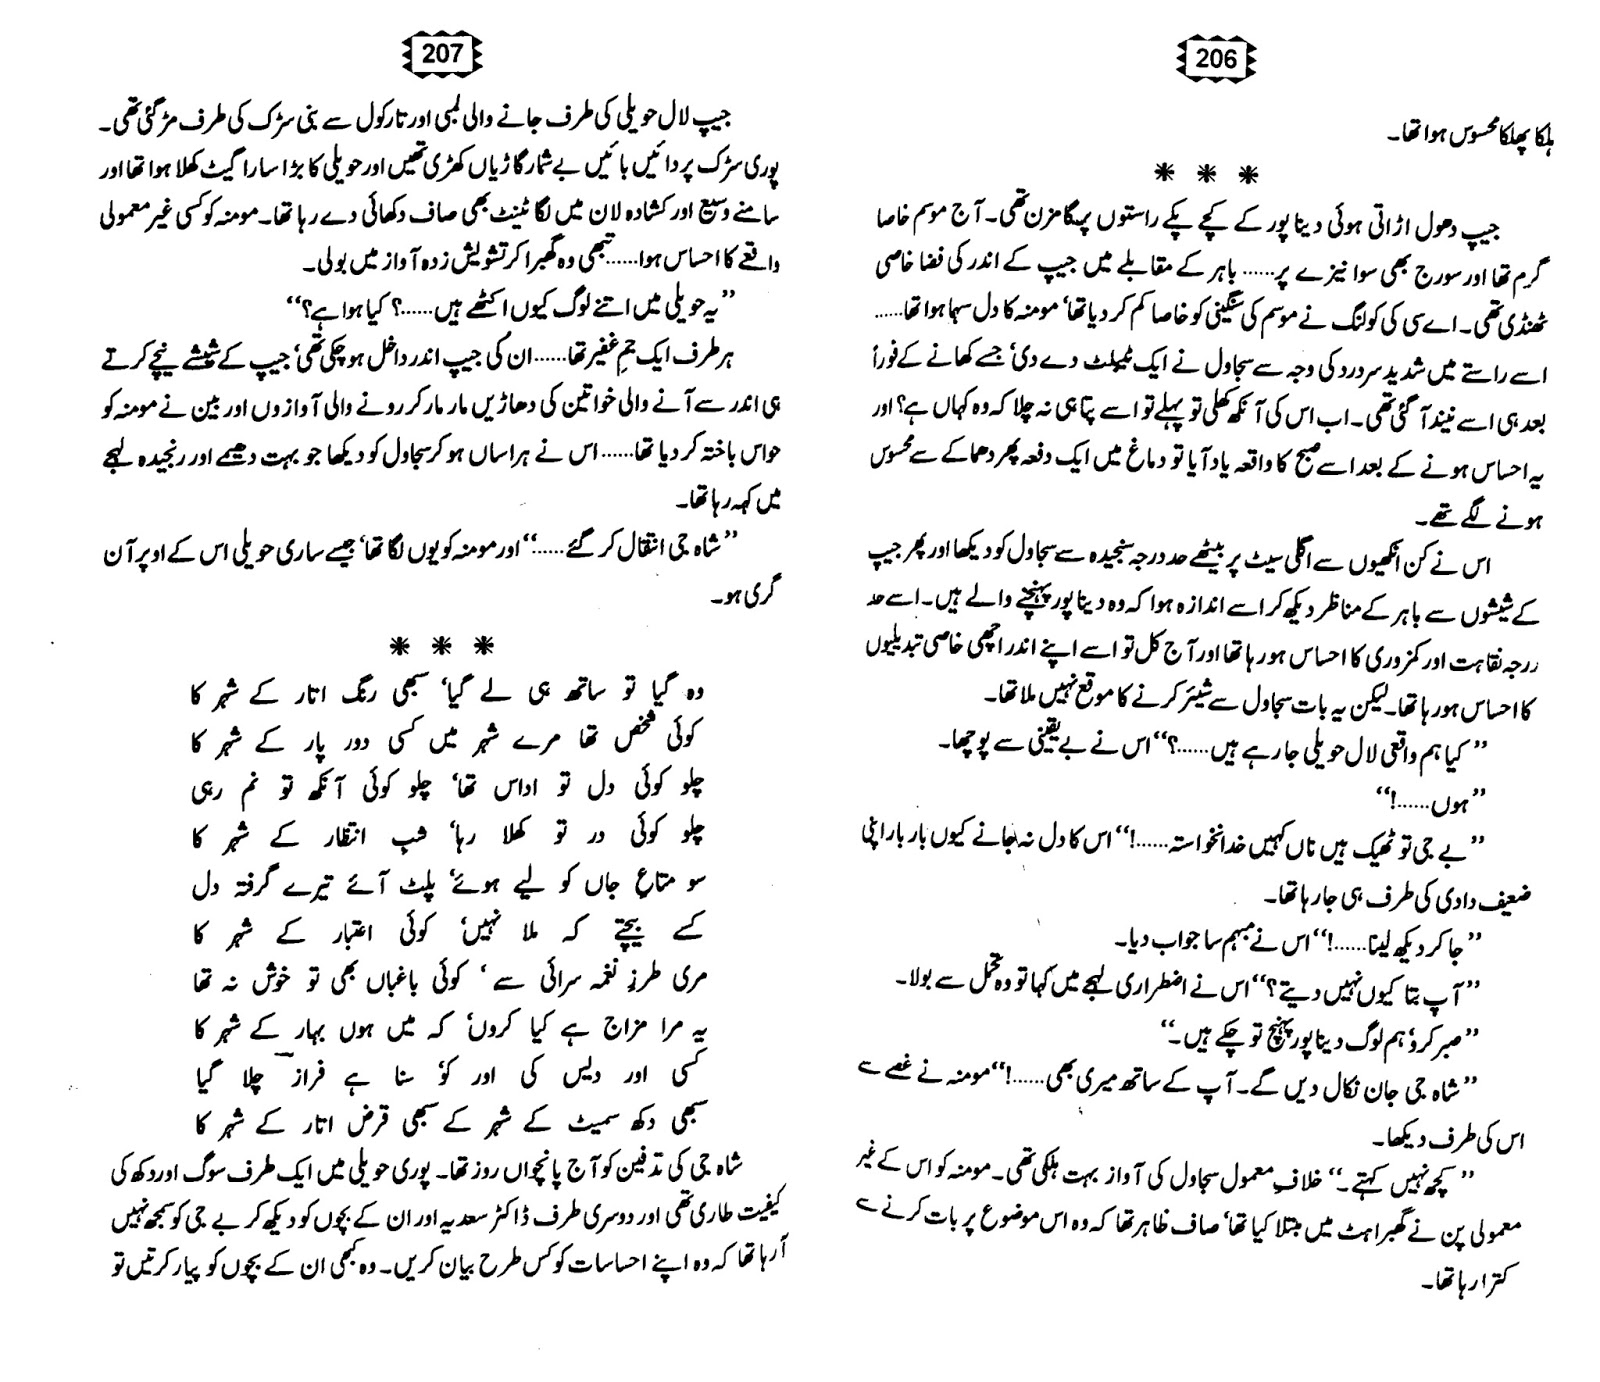 206
ہلکا پھلکا محسوس ہوا تھا۔
* * *
جیپ دھول اڑاتی ہوئی دینا پور کے کچے پکے راستوں پہ گامزن تھی۔ آج موسم خاصا
گرم تھا اور سورج بھی سوا نیزے پر...... باہر کے مقابلے میں جیپ کے اندر کی فضا خاصی
ٹھنڈی تھی۔ اے سی کی کولنگ نے موسم کی سنگینی کو خاصا کم کر دیا تھا‘ مومنہ کا دل سہما ہوا تھا......
اسے راستے میں شدید سر درد کی وجہ سے سجاول نے ایک ٹیبلٹ دے دی‘ جسے کھانے کے فوراً
بعد ہی اسے نیند آ گئی تھی۔ اب اس کی آنکھ کھلی تو پہلے تو اسے پتا ہی نہ چلا کہ وہ کہاں ہے؟ اور
یہ احساس ہونے کے بعد اسے صبح کا واقعہ یاد آیا تو دماغ میں ایک دفعہ پھر دھماکے سے محسوس
ہونے لگے تھے۔
اس نے کن انکھیوں سے اگلی سیٹ پر بیٹھے حد درجہ سنجیدہ سے سجاول کو دیکھا اور پھر جیپ
کے شیشوں سے باہر کے مناظر دیکھ کر اسے اندازہ ہوا کہ وہ دینا پور پہنچنے والے ہیں۔ اسے حد
درجہ نقاہت اور کمزوری کا احساس ہو رہا تھا اور آج کل تو اسے اپنے اندر اچھی خاصی تبدیلیوں
کا احساس ہو رہا تھا۔ لیکن یہ بات سجاول سے شیئر کرنے کا موقع نہیں ملا تھا۔
’’کیا ہم واقعی لال حویلی جا رہے ہیں......؟‘‘ اس نے بے یقینی سے پوچھا۔
’’ہوں......!‘‘
’’بے جی تو ٹھیک ہیں ناں کہیں خدانخواستہ......!‘‘ اس کا دل نہ جانے کیوں بار بار اپنی
ضعیف دادی کی طرف ہی جا رہا تھا۔
’’جا کر دیکھ لینا......!‘‘ اس نے مبہم سا جواب دیا۔
’’آپ بتا کیوں نہیں دیتے؟‘‘ اس نے اضطراری لہجے میں کہا تو وہ تحمل سے بولا۔
’’صبر کرو‘ ہم لوگ دینا پور پہنچ تو چکے ہیں۔‘‘
’’شاہ جی جان نکال دیں گے۔ آپ کے ساتھ میری بھی......!‘‘ مومنہ نے غصے سے
اس کی طرف دیکھا۔
’’کچھ نہیں کہتے۔‘‘ خلافِ معمول سجاول کی آواز بہت ہلکی تھی۔ مومنہ کو اس کے غیر
معمولی پن نے گھبراہٹ میں مبتلا کیا تھا‘ صاف ظاہر تھا کہ وہ اس موضوع پر بات کرنے سے
کترا رہا تھا۔
207
جیپ لال حویلی کی طرف جانے والی لمبی اور تارکول سے بنی سڑک کی طرف مڑ گئی تھی۔
پوری سڑک پر دائیں بائیں بے شمار گاڑیاں کھڑی تھیں اور حویلی کا بڑا سارا گیٹ کھلا ہوا تھا اور
سامنے وسیع اور کشادہ لان میں لگا ٹینٹ بھی صاف دکھائی دے رہا تھا۔ مومنہ کو کسی غیر معمولی
واقعے کا احساس ہوا...... تبھی وہ گھبرا کر تشویش زدہ آواز میں بولی۔
’’یہ حویلی میں اتنے لوگ کیوں اکٹھے ہیں......؟ کیا ہوا ہے؟‘‘
ہر طرف ایک جمِ غفیر تھا...... ان کی جیپ اندر داخل ہو چکی تھی‘ جیپ کے شیشے نیچے کرتے
ہی اندر سے آنے والی خواتین کی دھاڑیں مار مار کر رونے والی آوازوں اور بین نے مومنہ کو
حواس باختہ کر دیا تھا...... اس نے ہراساں ہو کر سجاول کو دیکھا جو بہت دھیمے اور رنجیدہ لہجے
میں کہہ رہا تھا۔
’’شاہ جی انتقال کر گئے......‘‘ اور مومنہ کو یوں لگا تھا‘ جیسے ساری حویلی اس کے اوپر آن
گری ہو۔
* * *
وہ گیا تو ساتھ ہی لے گیا‘ سبھی رنگ اتار کے شہر کا
کوئی شخص تھا مرے شہر میں کسی دور پار کے شہر کا
چلو کوئی دل تو اداس تھا‘ چلو کوئی آنکھ تو نم رہی
چلو کوئی در تو کھلا رہا‘ شبِ انتظار کے شہر کا
سو متاعِ جاں کو لیے ہوئے‘ پلٹ آئے تیرے گرفتہ دل
کسے بیچتے کہ ملا نہیں‘ کوئی اعتبار کے شہر کا
مری طرزِ نغمہ سرائی سے‘ کوئی باغباں بھی تو خوش نہ تھا
یہ مرا مزاج ہے کیا کروں‘ کہ میں ہوں بہار کے شہر کا
کسی اور دیس کی اور کو‘ سنا ہے فراز چلا گیا
سبھی دکھ سمیٹ کے شہر کے سبھی قرض اتار کے شہر کا
شاہ جی کی تدفین کو آج پانچواں روز تھا۔ پوری حویلی میں ایک طرف سوگ اور دکھ کی
کیفیت طاری تھی اور دوسری طرف ڈاکٹر سعدیہ اور ان کے بچوں کو دیکھ کر بے جی کو سمجھ نہیں
آ رہا تھا کہ وہ اپنے احساسات کو کس طرح بیان کریں۔ وہ کبھی ان کے بچوں کو پیار کرتیں تو